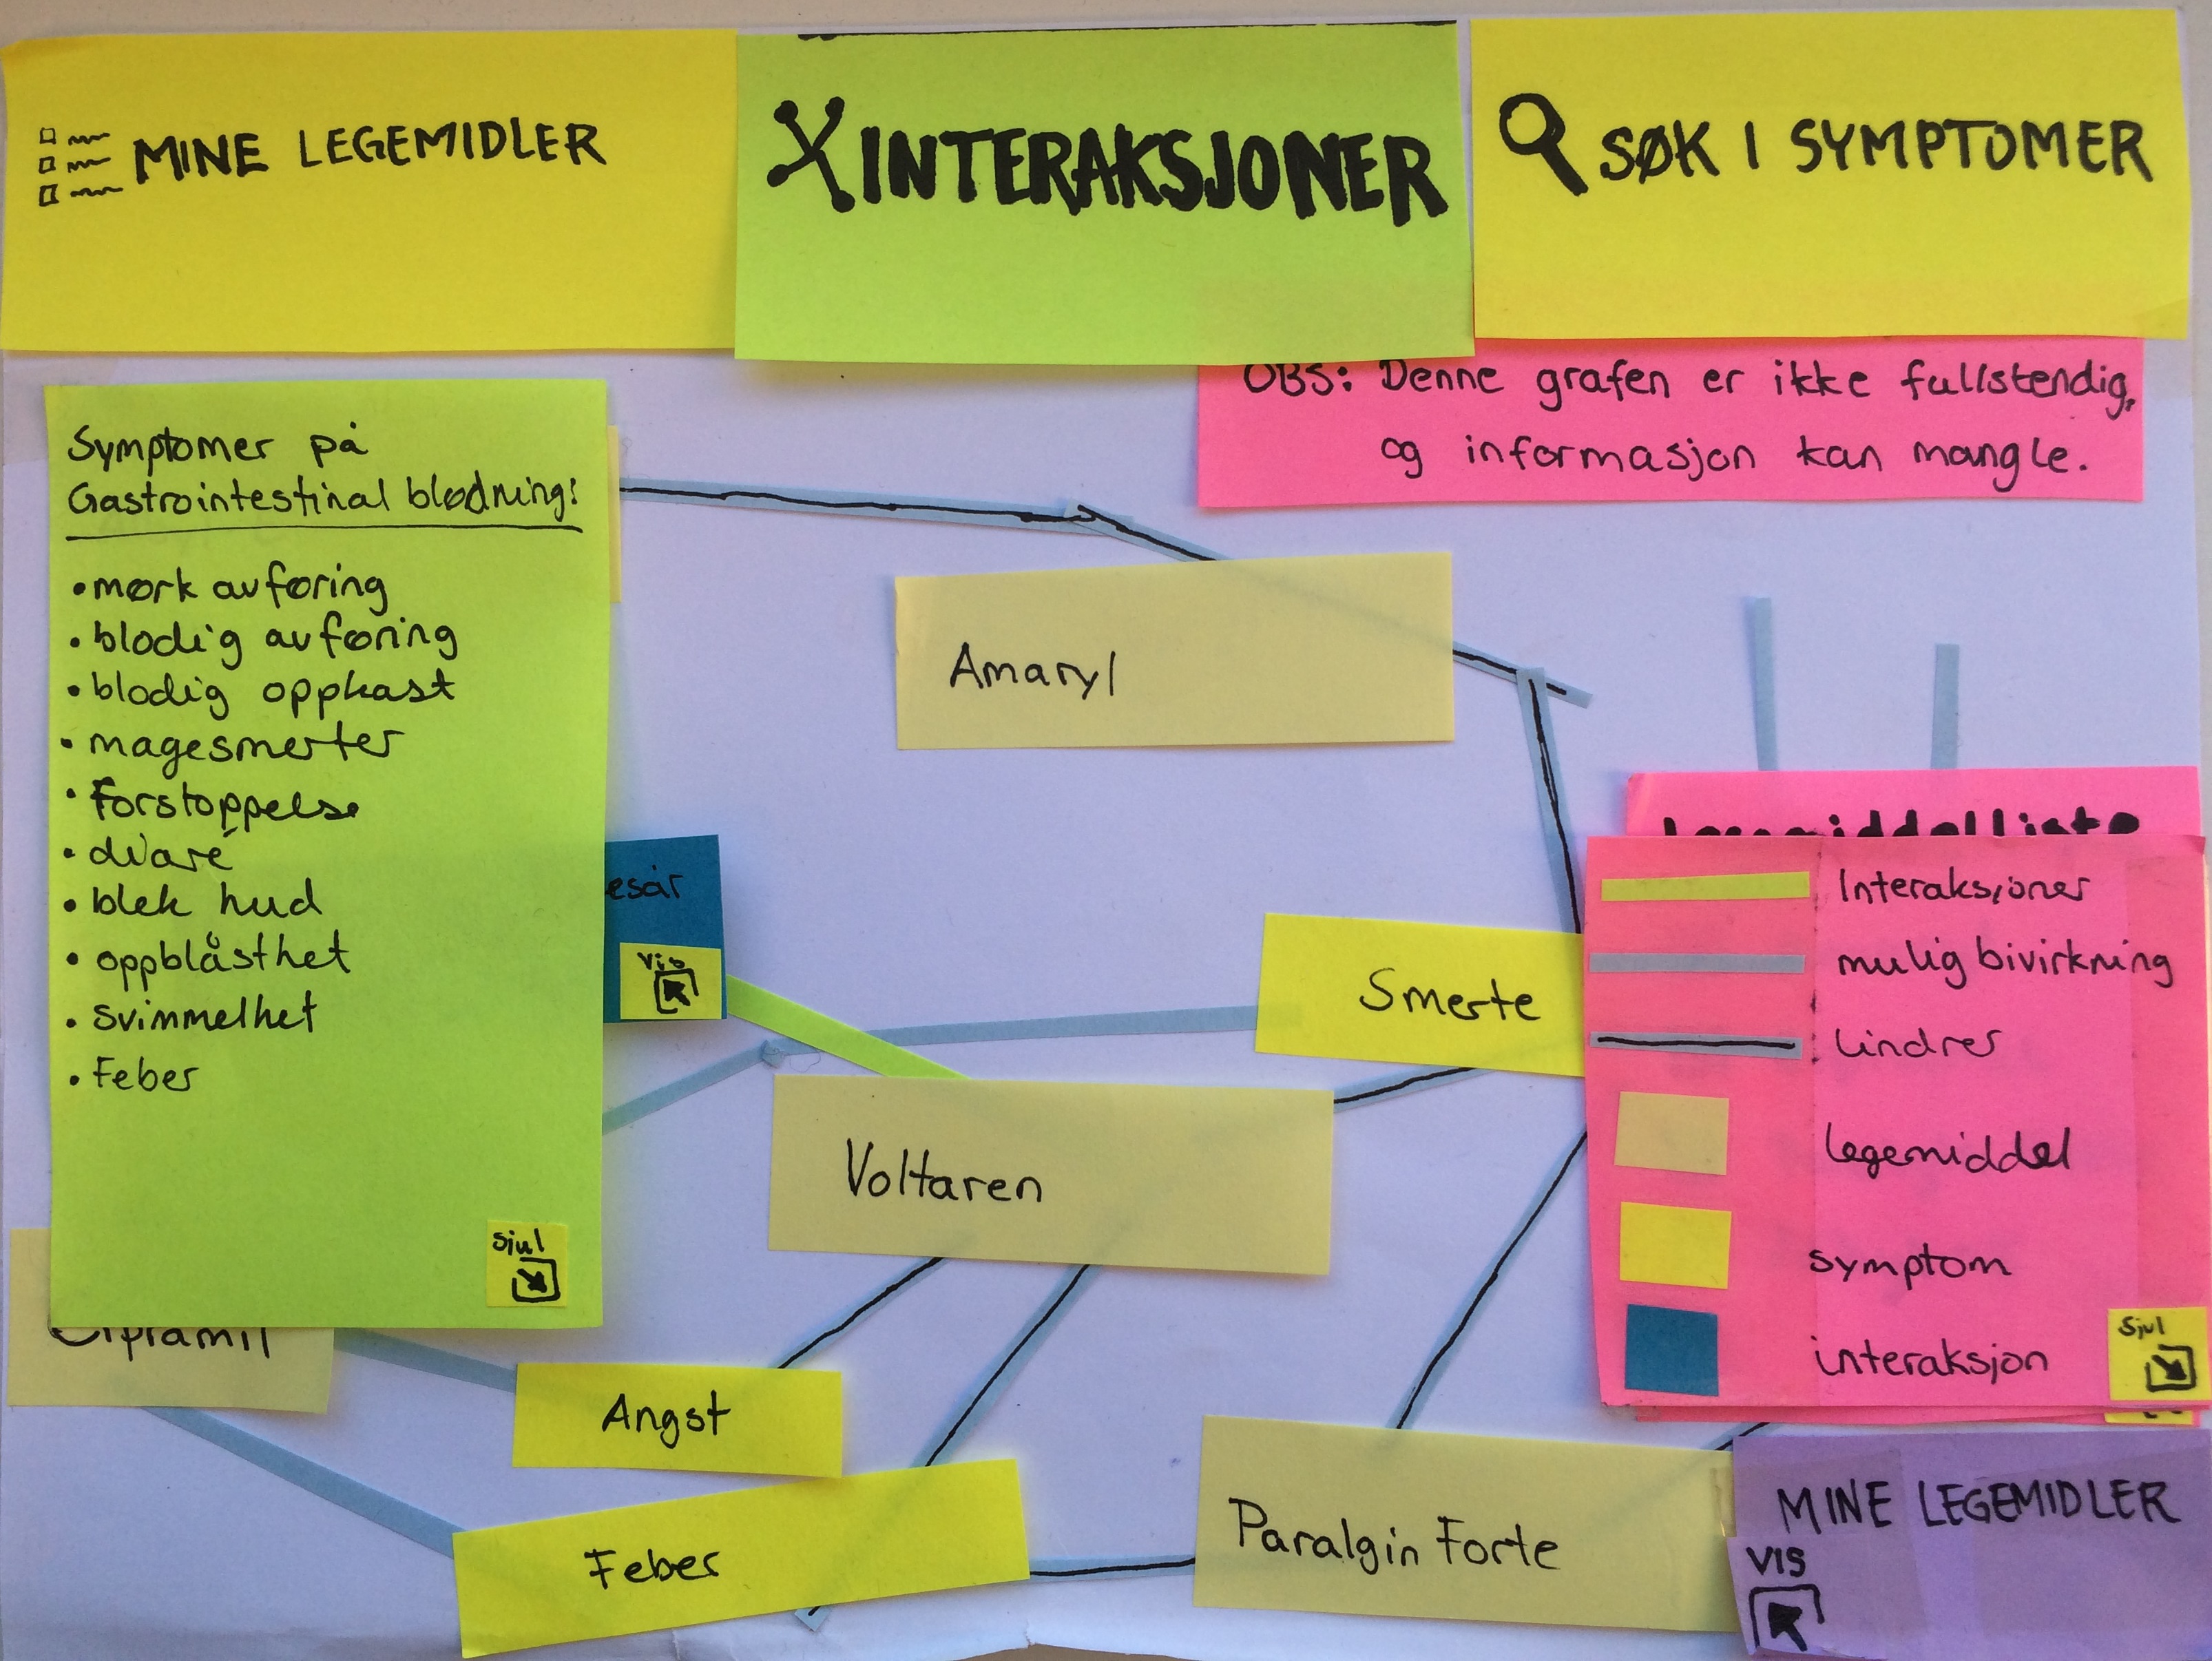 MINE LEGEMIDLER
INTERAKSJONER
SØK I SYMPTOMER
OBS: Denne grafen er ikke fullstendig,
og informasjon kan mangle.
Symptomer på
Gastrointestinal blødning:
• mørk avføring
• blodig avføring
• blodig oppkast
• magesmerter
• Forstoppelse
• diaré
• blek hud
• oppblåsthet
• svimmelhet
• Feber
Sjul
Amaryl
esår
Vis
Smerte
Voltaren
Cipramil
Angst
Feber
Paralgin Forte
Legemiddelliste
Interaksjoner
mulig bivirkning
Lindrer
Legemiddel
symptom
interaksjon
Sjul
MINE LEGEMIDLER
VIS